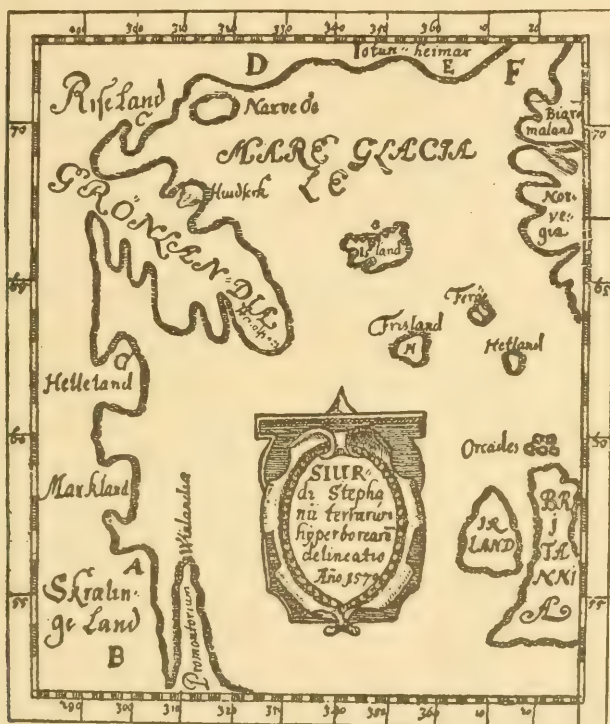 290 300 310 320 330 340 350 360 10 20
Jotun=heimar
D
E
F
Riseland
C
Narve Oe
Biar
maland
70
70
MARE GLACIA
LE
Huidserk
GRÖNLAN=DIA
Nor
ve=
gia
Island
65
65
Ferge
Frisland
H
Hetland
G
Helleland
60
60
Orcades
Markland
SIUR=
di Stepha
nii terrarum
hyperborearū
delineatio
Año 1570
IR
LAND
BR
I
TA
NNI
Æ
A
Promontorium Winlandiæ
Skralin=
ge Land
55
55
B
290 300 310 320 330 340 350 360 10 20